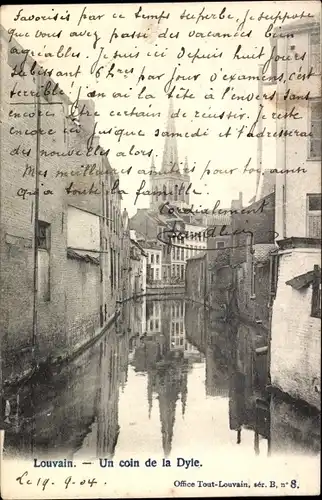 Favorisés par ce temps superbe, je suppose
que vous avez passé des vacances bien
agréables. Je suis ici depuis huit jours
subissant 6 hres par jour d'examens, c'est
terrible! J'en ai la tête à l'envers sans
encore être certain de réussir. Je reste
encore ici jusque samedi et t'adresserai
des nouvelles alors.
Mes meilleures amitiés pour toi, ainsi
qu'à toute la famille.
Cordialement
Louvain. - Un coin de la Dyle.
Office Tout-Louvain, sér. B, nº 8.
Le 19. 9. 04.